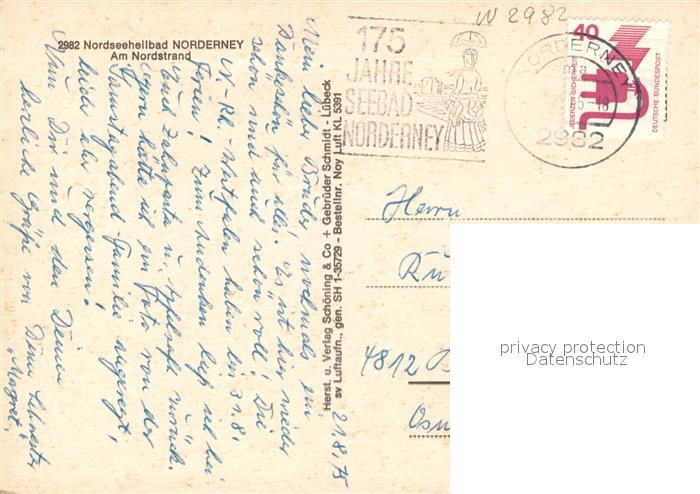 2982 Nordseeheilbad NORDERNEY
Am Nordstrand
W 2982
175
JAHRE
SEEBAD
NORDERNEY
NORDERNEY
2982
40
JEDERZEIT SICHERHEIT
DEUTSCHE BUNDESPOST
Herst. u. Verlag Schöning & Co + Gebrüder Schmidt - Lübeck
sv Luftaufn., gen. SH 1-35729 - Bestellnr. Noy Luft KL 5391
21.8.75
Mein lieber Bruder, nochmals ein
Dankeschön für alles. Es ist hier wieder
schön und auch schon voll! Die
N-Rh-Westfalen haben bis 31.8.
Ferien! Zum Andenken ließ ich bei
Euch Zahnpasta u. Apfelsaft zurück.
Gern hätte ich ein Foto von der
Familie
leider vergessen!
Nun Dir und den Deinen
herzliche Grüße von Deiner Schwester
Margret
Herrn
4812 B
Osn
privacy protection
Datenschutz